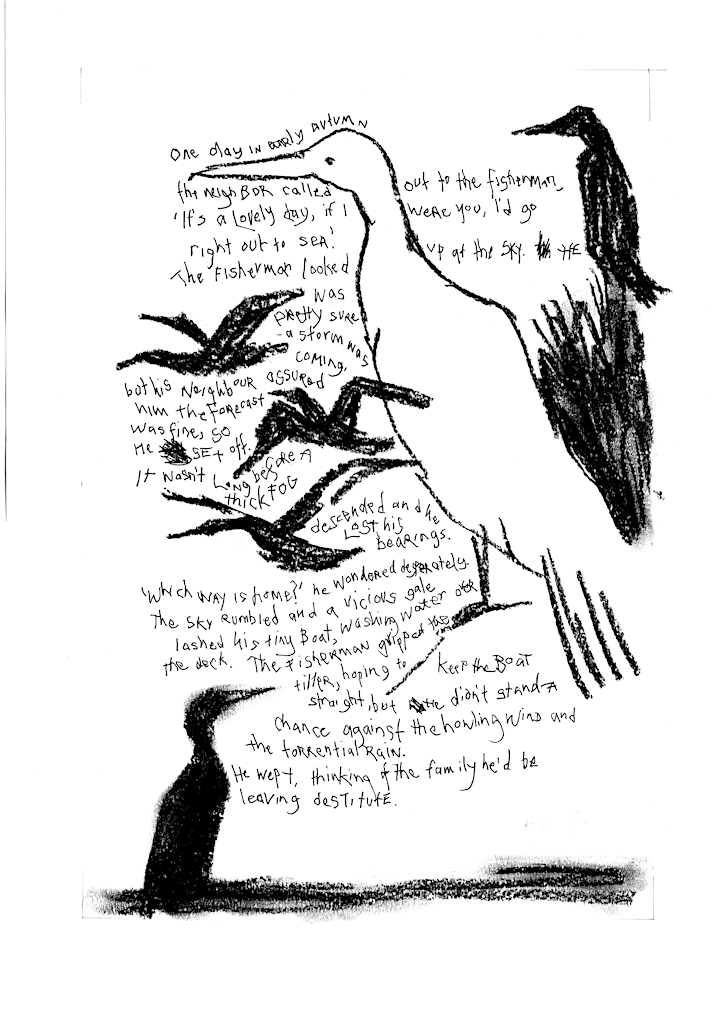 One day in early autumn
the neighbor called out to the fisherman,
'It's a lovely day, if I were you, I'd go
right out to sea.'
The fisherman looked up at the sky. He
was
pretty sure
a storm was
coming,
but his neighbour assured
him the forecast
was fine, so
He set off.
It wasn't long before a
thick fog
descended and he
lost his
bearings.
'Which way is home?' he wondered desperately.
The sky rumbled and a vicious gale
lashed his tiny boat, washing water over
the deck. The fisherman gripped the
tiller, hoping to keep the boat
straight, but he didn't stand a
chance against the howling wind and
the torrential rain.
He wept, thinking of the family he'd be
leaving destitute.